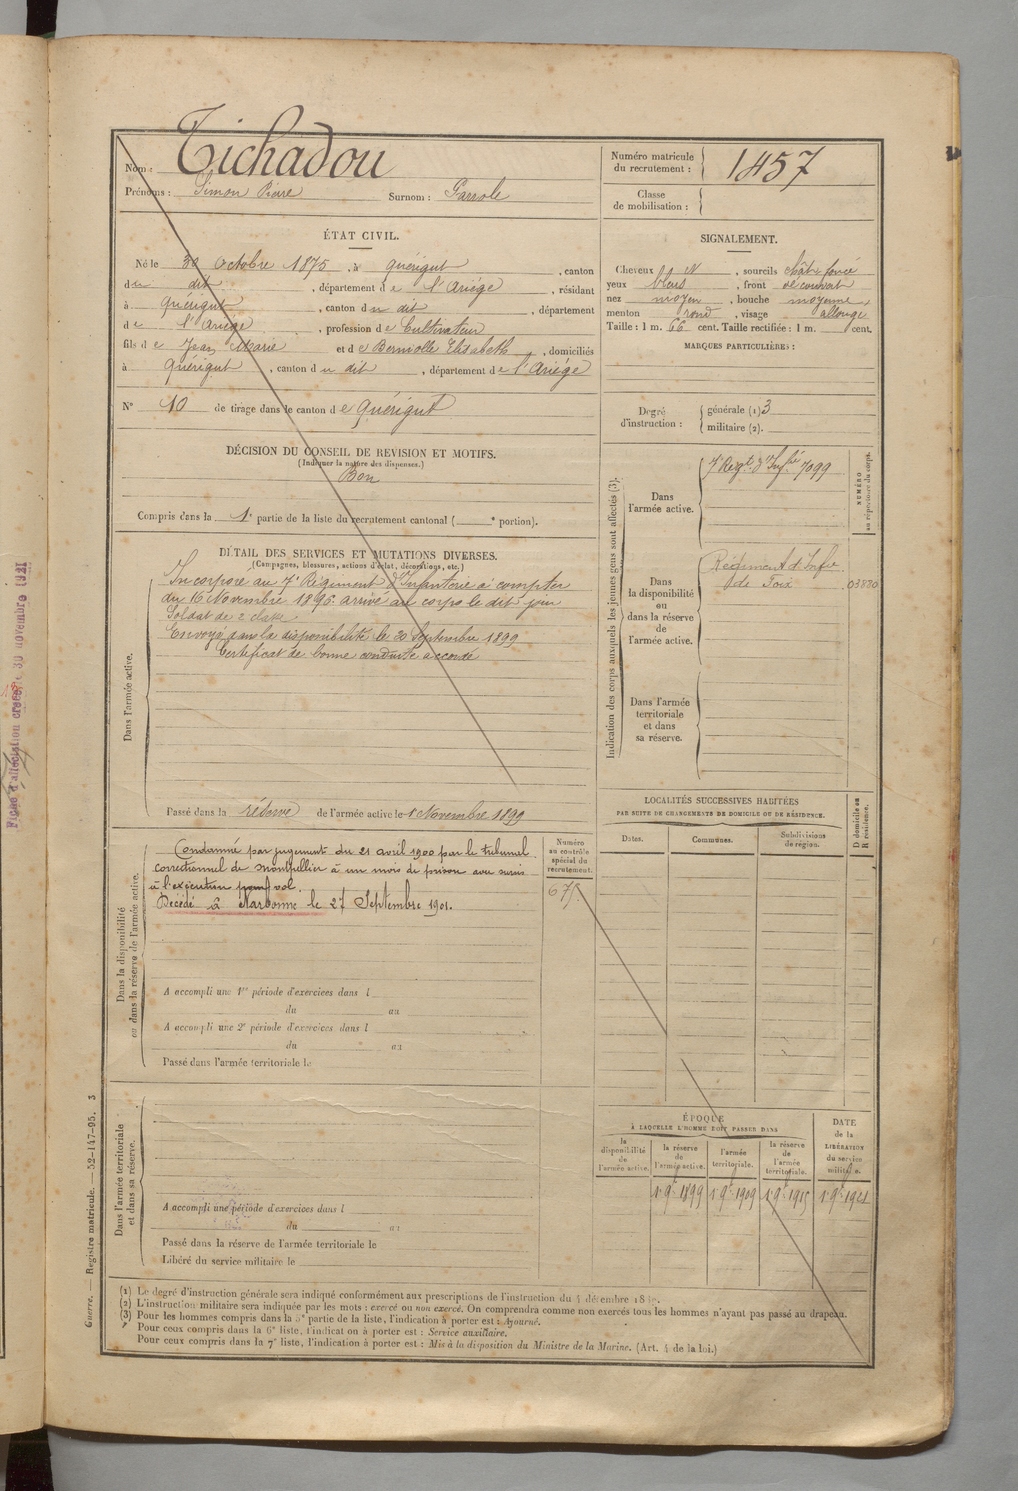 Nom : Tichadou
Prénoms : Simon Pierre Surnom : Parrole
Numéro matricule du recrutement : 1457
Classe de mobilisation :
ÉTAT CIVIL.
Né le 30 octobre 1875, à Quérigut, canton
du dit, département de l'Ariège, résidant
à Quérigut, canton du dit, département
de l'Ariège, profession de Cultivateur
fils de Jean Marie et de Berniolle Elisabeth, domiciliés
à Quérigut, canton du dit, département de l'Ariège
N° 10 de tirage dans le canton de Quérigut
SIGNALEMENT.
Cheveux N, sourcils chât. foncé
yeux bleus, front découvert
nez moyen, bouche moyenne,
menton rond, visage allongé
Taille : 1 m. 66 cent. Taille rectifiée : 1 m. cent.
MARQUES PARTICULIÈRES :
Degré d'instruction : générale (1) 3
militaire (2).
DÉCISION DU CONSEIL DE REVISION ET MOTIFS.
(Indiquer la nature des dispenses.)
Bon
Compris dans la 1e partie de la liste du recrutement cantonal ( e portion).
DÉTAIL DES SERVICES ET MUTATIONS DIVERSES.
(Campagnes, blessures, actions d'éclat, décorations, etc.)
Dans l'armée active.
Incorporé au 7e Régiment d'Infanterie à compter
du 16 Novembre 1896. arrivé au corps le dit jour
Soldat de 2e classe
Envoyé dans la disponibilité le 20 Septembre 1899
Certificat de bonne conduite accordé
Passé dans la réserve de l'armée active le 1 Novembre 1899
Indication des corps auxquels les jeunes gens sont affectés (3).
Dans l'armée active.
7e Régt d'Infie 7099
NUMÉRO au répertoire du corps.
Dans la disponibilité ou dans la réserve de l'armée active.
Régiment d'Infie
de Foix 03880
Dans l'armée territoriale et dans sa réserve.
LOCALITÉS SUCCESSIVES HABITÉES
PAR SUITE DE CHANGEMENTS DE DOMICILE OU DE RÉSIDENCE.
D domicile ou R résidence.
Dates. Communes. Subdivisions de région.
Dans la disponibilité ou dans la réserve de l'armée active.
Condamné par jugement du 21 avril 1900 par le tribunal
correctionnel de Montpellier à un mois de prison avec sursis
à l'exécution pour vol.
Décédé à Narbonne le 27 Septembre 1901.
Numéro au contrôle spécial du recrutement.
675
A accompli une 1re période d'exercices dans l
du au
A accompli une 2e période d'exercices dans l
du au
Passé dans l'armée territoriale le
Dans l'armée territoriale et dans sa réserve.
A accompli une période d'exercices dans l
du au
Passé dans la réserve de l'armée territoriale le
Libéré du service militaire le
ÉPOQUE
À LAQUELLE L'HOMME DOIT PASSER DANS
la disponibilité de l'armée active.
la réserve de l'armée active.
l'armée territoriale.
la réserve de l'armée territoriale.
DATE de la LIBÉRATION du service militaire.
1 9bre 1899 1 9bre 1909 1 9bre 1915 1 9bre 1921
(1) Le degré d'instruction générale sera indiqué conformément aux prescriptions de l'instruction du 4 décembre
(2) L'instruction militaire sera indiquée par les mots : exercé ou non exercé. On comprendra comme non exercés tous les hommes n'ayant pas passé au drapeau.
(3) Pour les hommes compris dans la 5e partie de la liste, l'indication à porter est : Ajourné.
Pour ceux compris dans la 6e liste, l'indication à porter est : Service auxiliaire.
Pour ceux compris dans la 7e liste, l'indication à porter est : Mis à la disposition du Ministre de la Marine. (Art. 4 de la loi.)
Guerre. — Registre matricule. — 52-147-95. 3
Fiche d'affectation créée le 30 novembre 1921